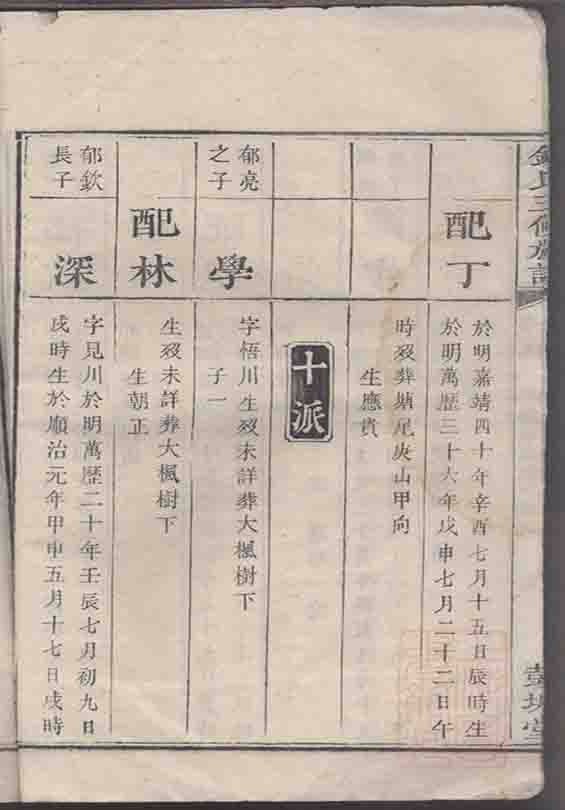 氏三修族譜
配丁
於明嘉靖四十年辛酉七月十五日辰時生
於明萬歷三十六年戊申七月二十二日午
時歿葬塘尾庚山甲向
生應貴
十派
郁亮
之子
學
字悟川生歿未詳葬大楓樹下
子一
配林
生歿未詳葬大楓樹下
生朝正
郁欽
長子
深
字見川於明萬歷二十年壬辰七月初九日
戌時生於順治元年甲申五月十七日戌時